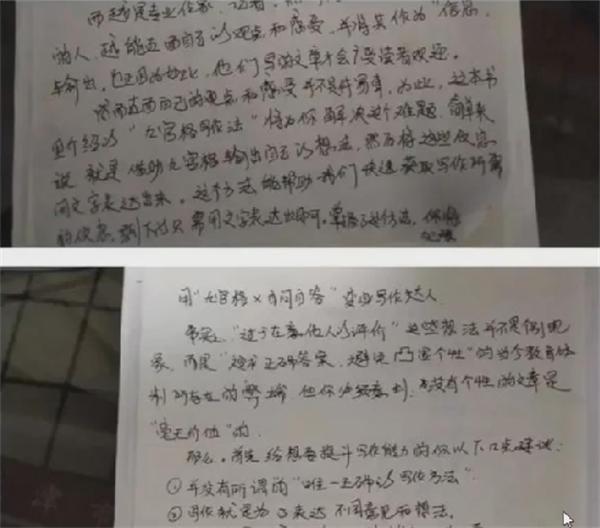 而越是专业作家、记者、
的人，越能直面自己的观点和感受，并将其作为“信息”
与输出，也正因为如此，他们写的文章才会广受读者欢迎。
然而直面自己的观点和感受并不是件易事，为此，这本书
里介绍的“九宫格写作法”将为你解决这个难题。简单来
说，就是借助九宫格输出自己的想法，然后将这些信息
用文字表达出来。这个方法能帮助我们快速获取写作所需
的信息，剩下的只需用文字表达出即可。掌握了这个方法，你将
用“九宫格×自问自答”变身写作达人
事实上，“过于在意他人的评价”这些想法并不是个别现
象，而是“追求正确答案，避免凸显个性”的当今教育体
制所存在的弊端。但你必须意识到，没有个性的文章是
“毫无价值”的。
那么，首先给想要提升写作能力的你以下几点建议：
①并没有所谓的“唯一正确的写作方法”
②写作就是为了表达不同意见和想法。